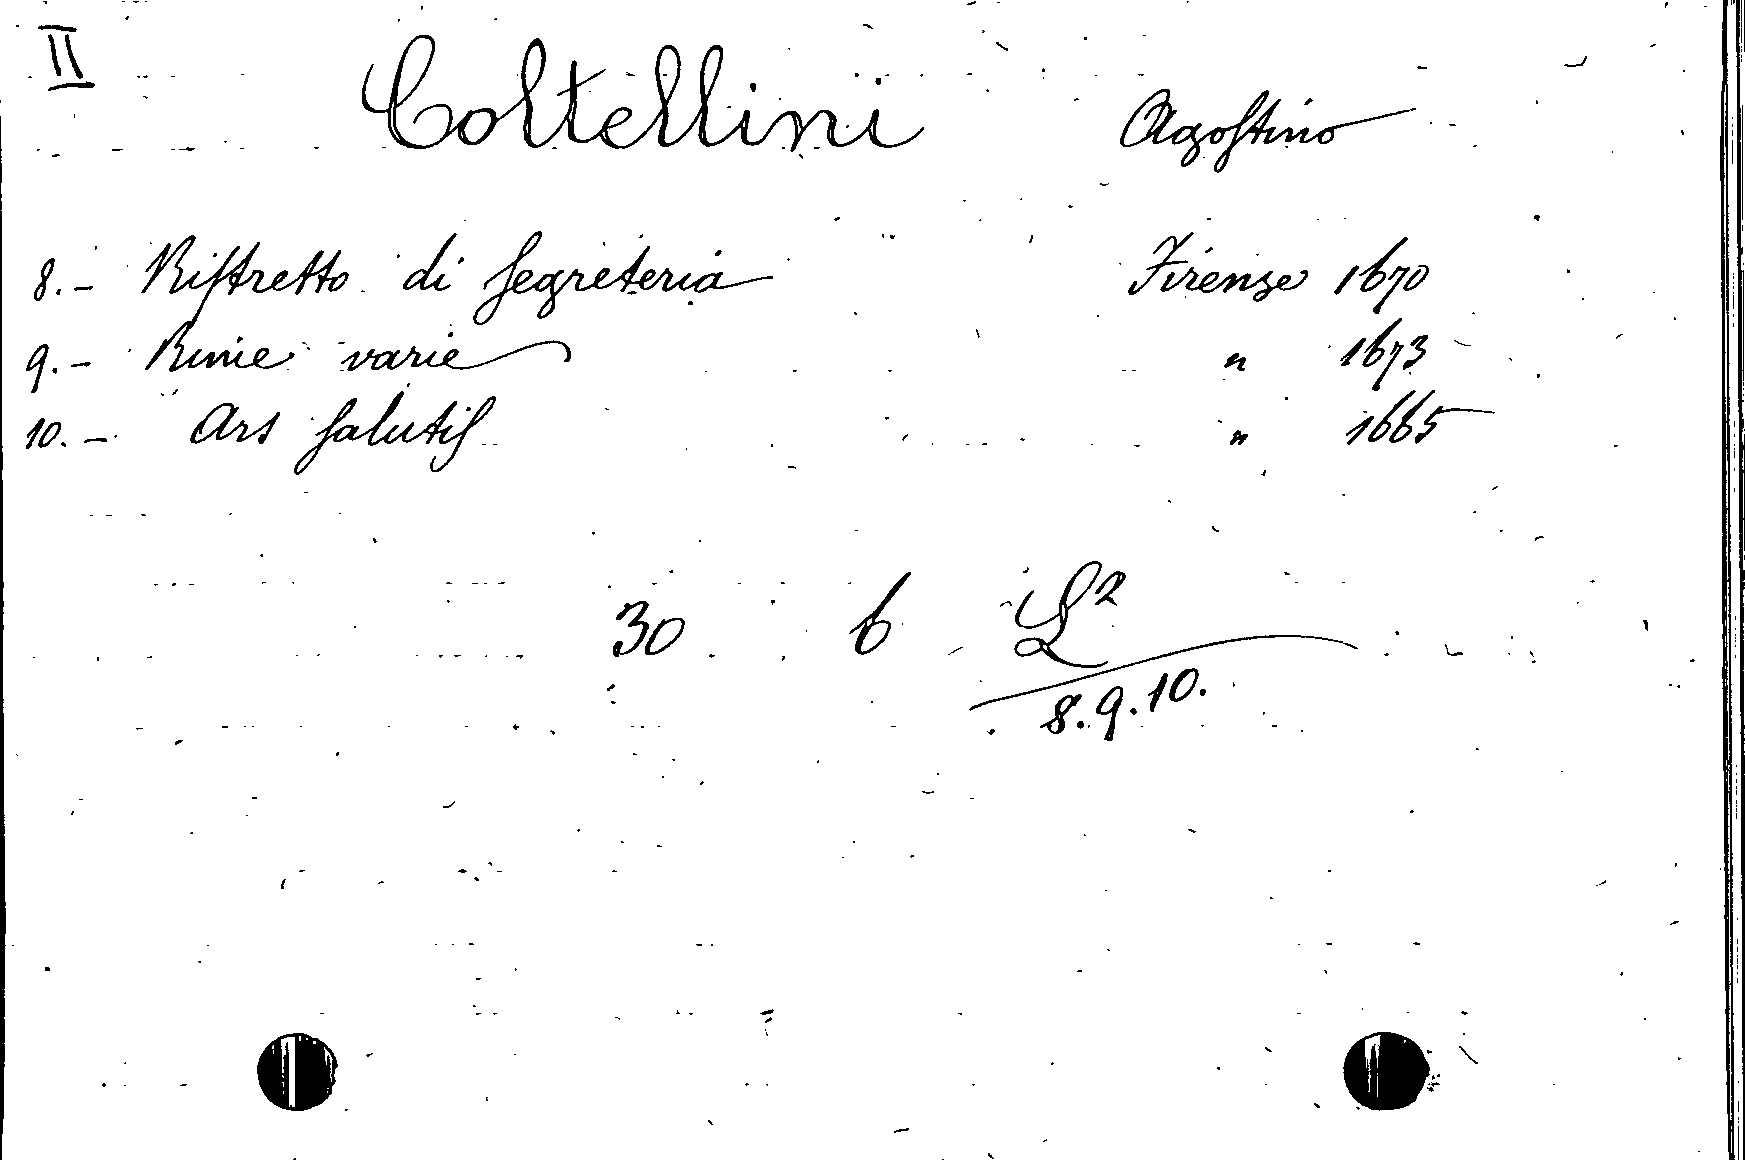 II
Coltellini Agostino
8.- Ristretto di Segreteria Firenze 1670
9.- Rime varie " 1673
10.- Ars salutis " 1665
30 b L²
8.9.10.